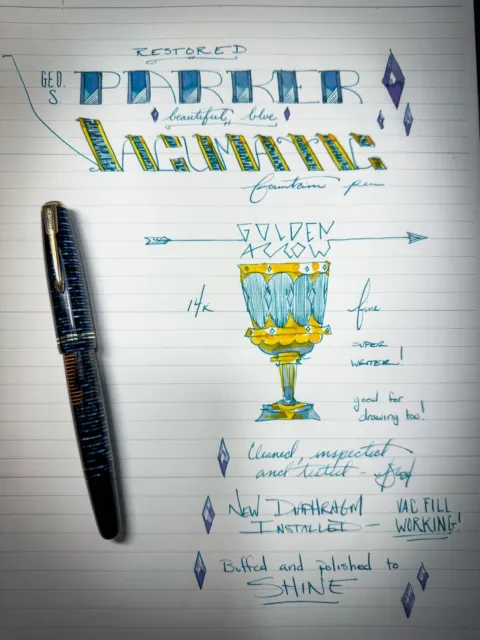 RESTORED
GEO. S. PARKER
beautiful, blue
VACUMATIC
fountain pen
GOLDEN
ARROW
14k fine
SUPER
WRITER!
good for
drawing too!
Cleaned, inspected
and tested -
NEW DIAPHRAGM
INSTALLED — VAC FILL
WORKING!
Buffed and polished to
SHINE